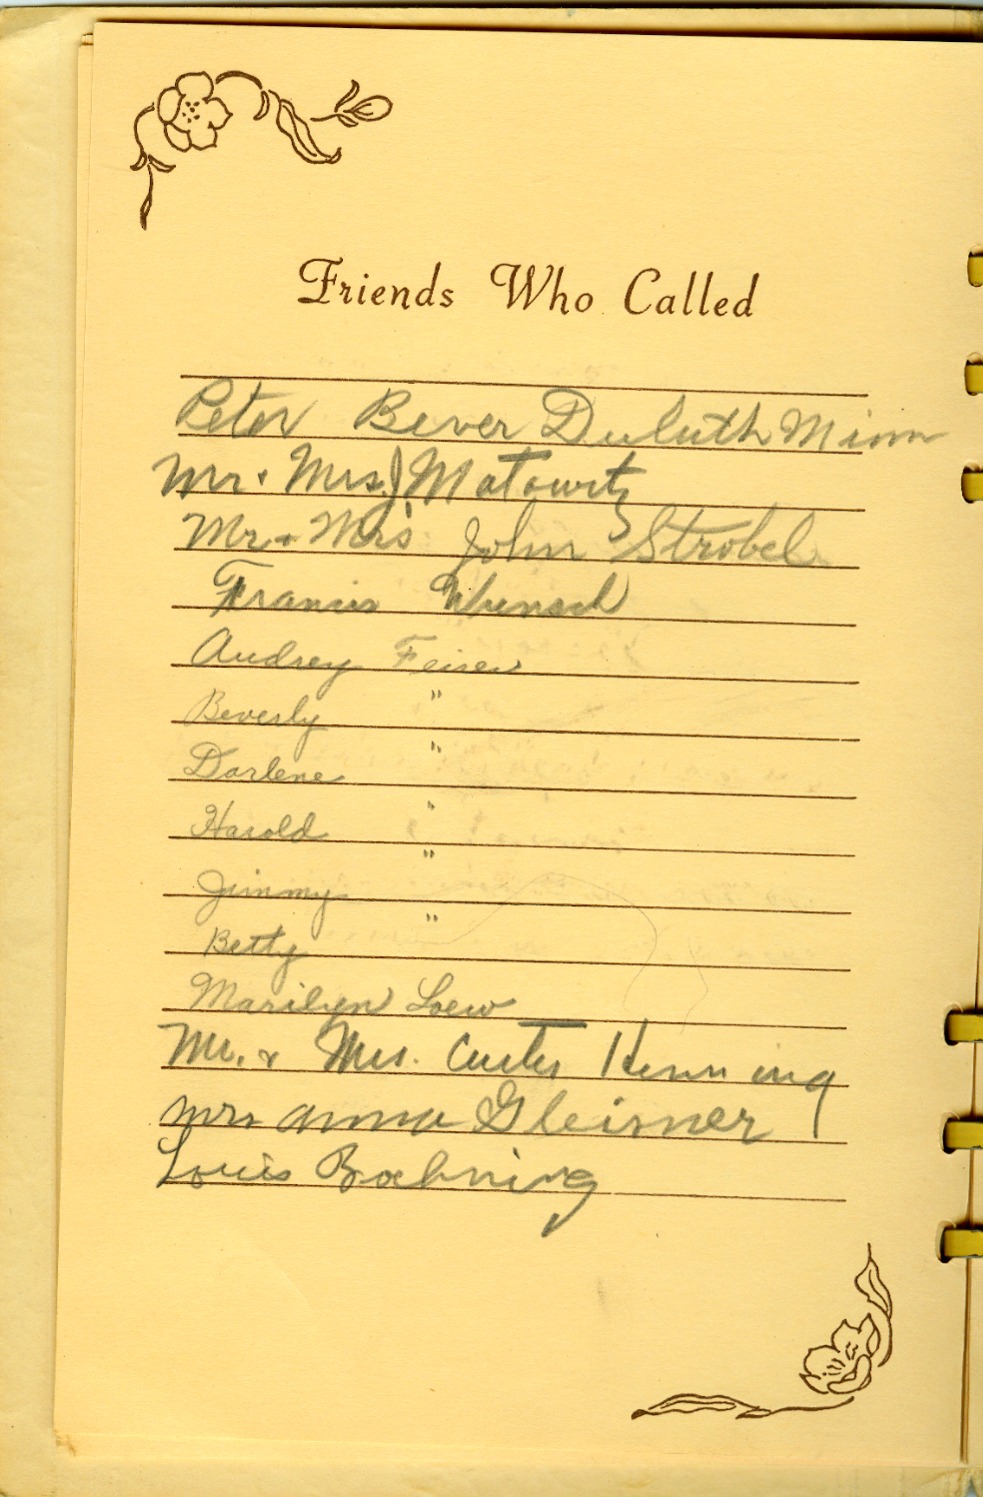 Friends Who Called
Peter Bever Duluth Minn
Mr. Mrs. J Matowitz
Mr. + Mrs John Strobel
Francis Wunsch
Audrey
Beverly "
Darlene "
Harold "
Jimmy "
Betty "
Marilyn Loew
Mr. & Mrs. Curtis Henning
Mrs Anna Gleisner
Louis Boehning